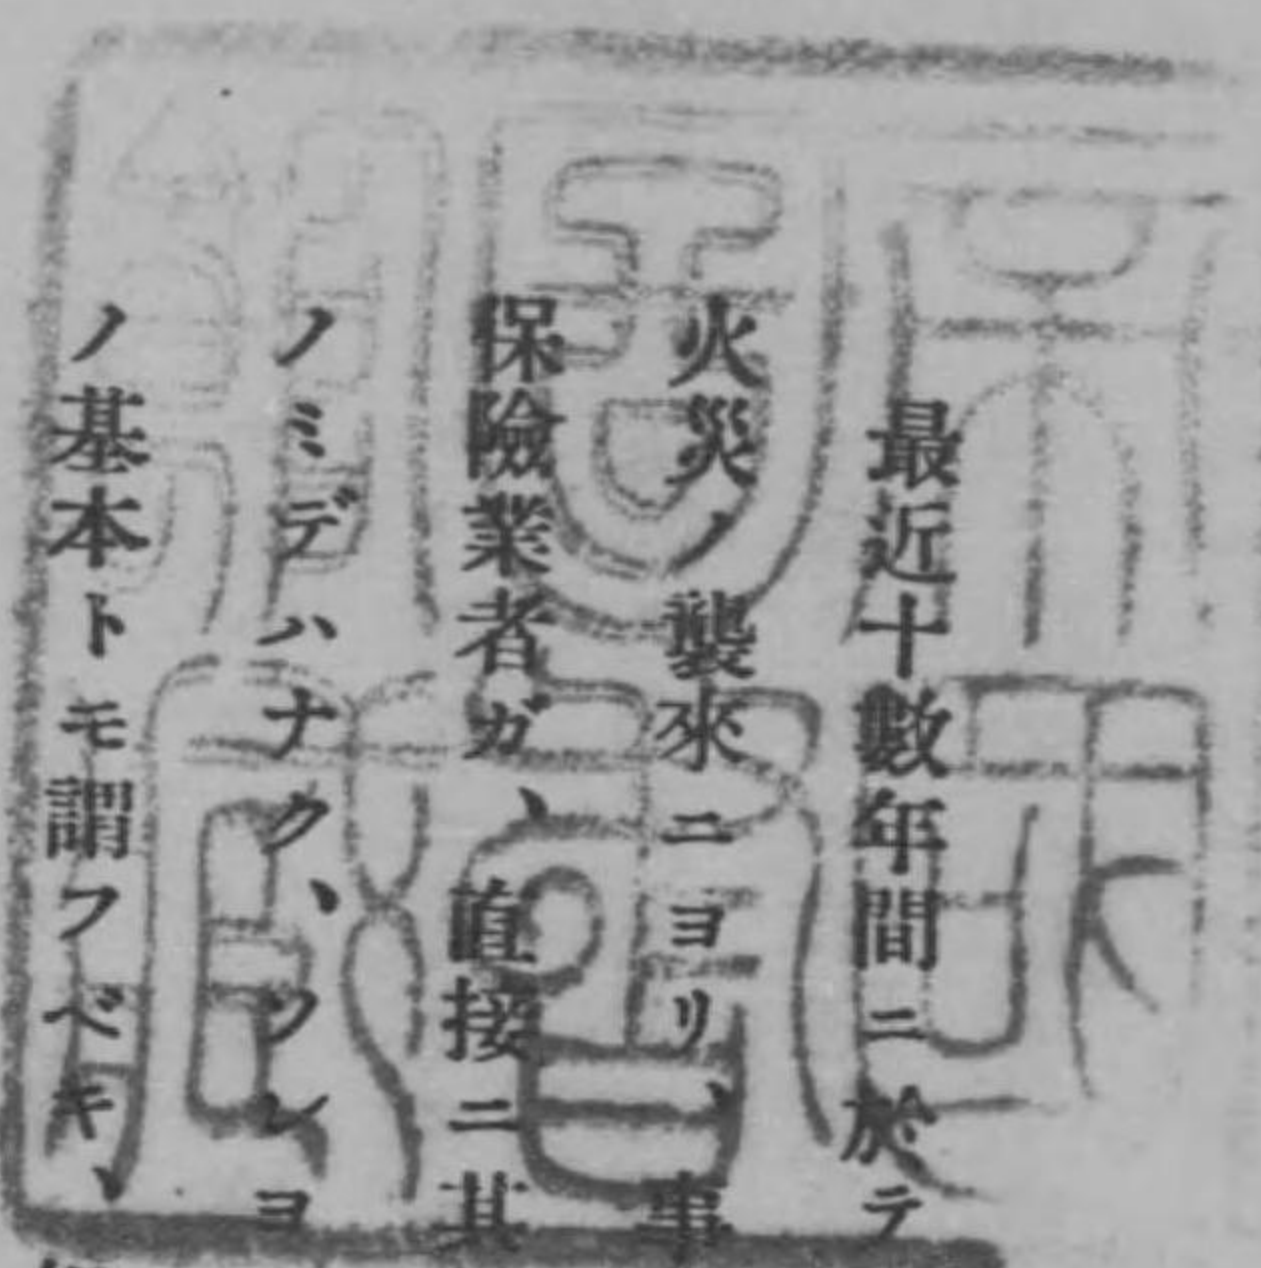 最近十數年間ニ於テ
火災ノ襲來ニヨリ、事
保險業者ガ、直接ニ其
ノミデハナクヽソレヨ
ノ基本トモ謂フベキ、